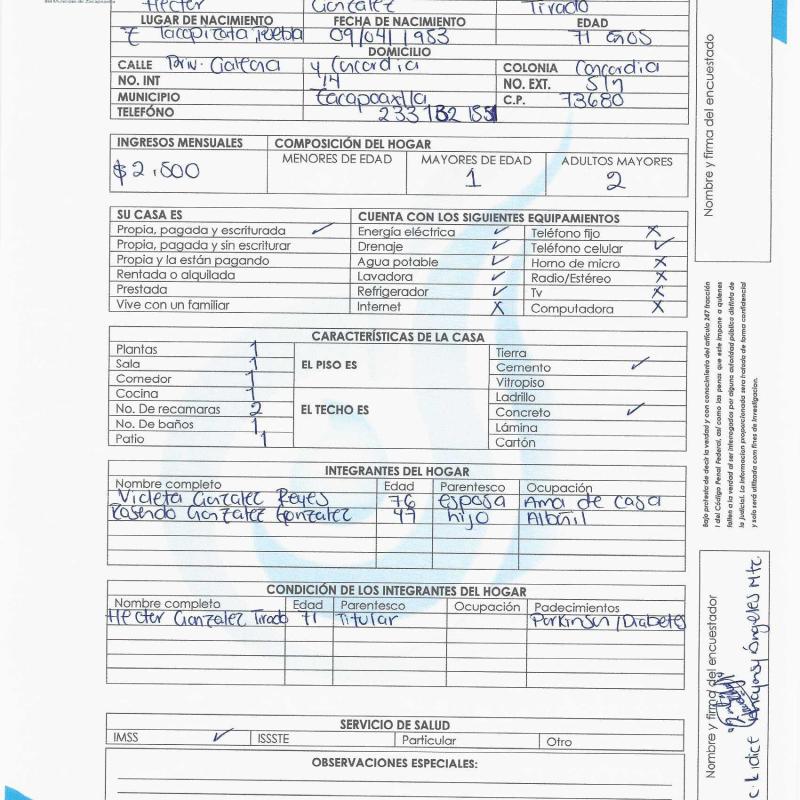 Héctor González Tirado
LUGAR DE NACIMIENTO FECHA DE NACIMIENTO EDAD
Puebla 09/04/1953 71 años
DOMICILIO
CALLE Priv. Galeana y Concordia COLONIA Concordia
NO. INT 14 NO. EXT. S/n
MUNICIPIO Zacapoaxtla C.P. 73680
TELEFÓNO
INGRESOS MENSUALES COMPOSICIÓN DEL HOGAR
$2,500 MENORES DE EDAD MAYORES DE EDAD ADULTOS MAYORES
1 2
SU CASA ES CUENTA CON LOS SIGUIENTES EQUIPAMIENTOS
Propia, pagada y escriturada ✓ Energía eléctrica ✓ Teléfono fijo X
Propia, pagada y sin escriturar Drenaje ✓ Teléfono celular ✓
Propia y la están pagando Agua potable ✓ Horno de micro X
Rentada o alquilada Lavadora ✓ Radio/Estéreo X
Prestada Refrigerador ✓ Tv X
Vive con un familiar Internet X Computadora X
CARACTERÍSTICAS DE LA CASA
Plantas 1 Tierra
Sala 1 EL PISO ES Cemento ✓
Comedor 1 Vitropiso
Cocina 1 Ladrillo
No. De recamaras 2 EL TECHO ES Concreto ✓
No. De baños 1 Lámina
Patio 1 Cartón
INTEGRANTES DEL HOGAR
Nombre completo Edad Parentesco Ocupación
Violeta González Reyes 76 esposa Ama de casa
Rosendo González González 47 hijo Albñil
CONDICIÓN DE LOS INTEGRANTES DEL HOGAR
Nombre completo Edad Parentesco Ocupación Padecimientos
Héctor González Tirado 71 Titular Parkinson/Diabetes
SERVICIO DE SALUD
IMSS ✓ ISSSTE Particular Otro
OBSERVACIONES ESPECIALES:
Nombre y firma del encuestado
Bajo protesta de decir la verdad y con conocimiento del artículo 247 fracción
I del Código Penal Federal, así como las penas que este impone a quienes
falten a la verdad al ser interrogados por alguna autoridad pública distinta de
la judicial. La información proporcionada sera tratada de forma confidencial
y solo será utilizada con fines de investigacion.
Nombre y firma del encuestador
Ángeles Mtz.